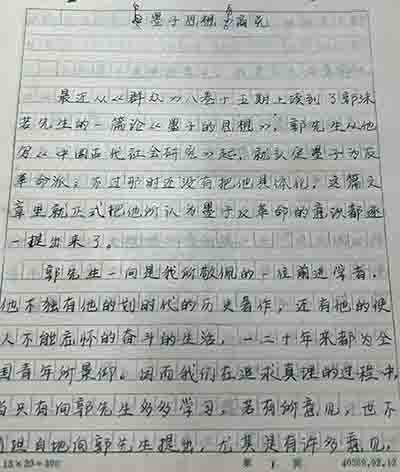 墨子思想商兑
最近从《群众》八卷十五期上读到了郭沫
若先生的一篇论《墨子的思想》，郭先生从他
写《中国古代社会研究》起，就认定墨子为反
革命派；不过那时还没有把他具体化，这篇文
章里就正式把他所认为墨子反革命的意识都逐
一提出来了。
郭先生一向是我所敬佩的一位前进学者，
他不独有他的划时代的历史著作，还有他的使
人不能忘怀的奋斗的生活，一二十年来都为全
国青年所景仰。因而我们在追求真理的过程中，
当只有向郭先生多多学习，若有所意见，也不
坦白地向郭先生提出，尤其是有许多意见，
15×20=300 第 1 页